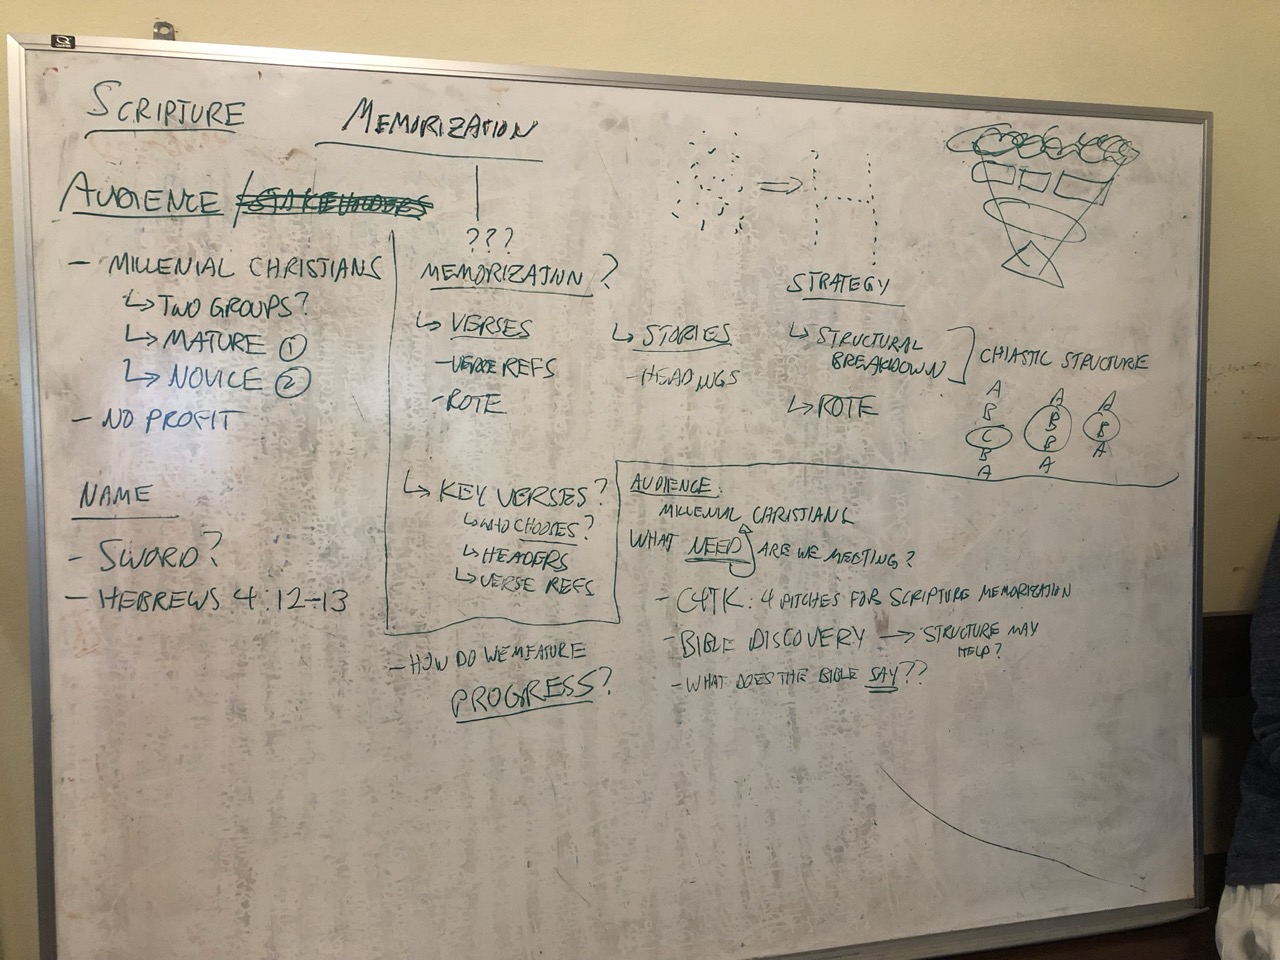 SCRIPTURE MEMORIZATION
AUDIENCE /
- MILLENIAL CHRISTIANS
↳ TWO GROUPS?
↳ MATURE ①
↳ NOVICE ②
- NO PROFIT
NAME
- SWORD?
- HEBREWS 4:12-13
???
MEMORIZATION?
↳ VERSES
- VERSE REFS
- ROTE
↳ STORIES
- HEADINGS
↳ KEY VERSES?
↳ WHO CHOOSES?
↳ HEADERS
↳ VERSE REFS
- HOW DO WE MEATURE
PROGRESS?
STRATEGY
↳ STRUCTURAL
BREAKDOWN
CHIASTIC STRUCTURE
↳ ROTE
A A A
B B B
C B A
B A
A
AUDIENCE:
MILLENIAL CHRISTIANS
WHAT NEED ARE WE MEETING?
- C4TK: 4 PITCHES FOR SCRIPTURE MEMORIZATION
- BIBLE DISCOVERY → STRUCTURE MAY
HELP?
- WHAT DOES THE BIBLE SAY??